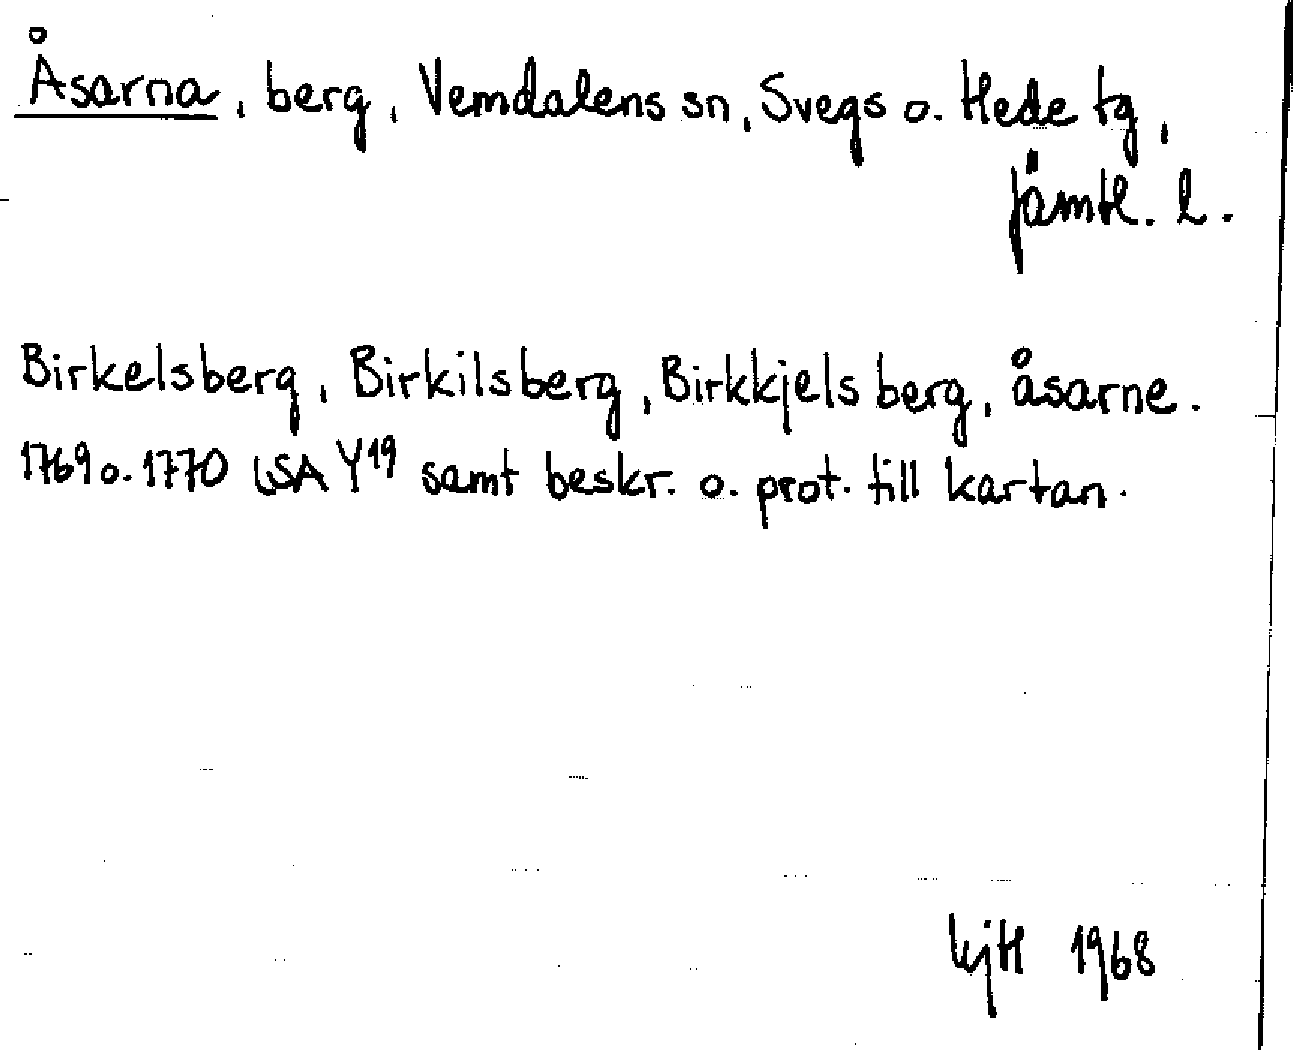 Åsarna, berg, Vemdalens sn, Svegs o. Hede tg,
Jämtl. l.
Birkelsberg, Birkilsberg, Birkkjels berg, åsarne.
1769 o. 1770 LSA Y19 samt beskr. o. prot. till kartan.
1968